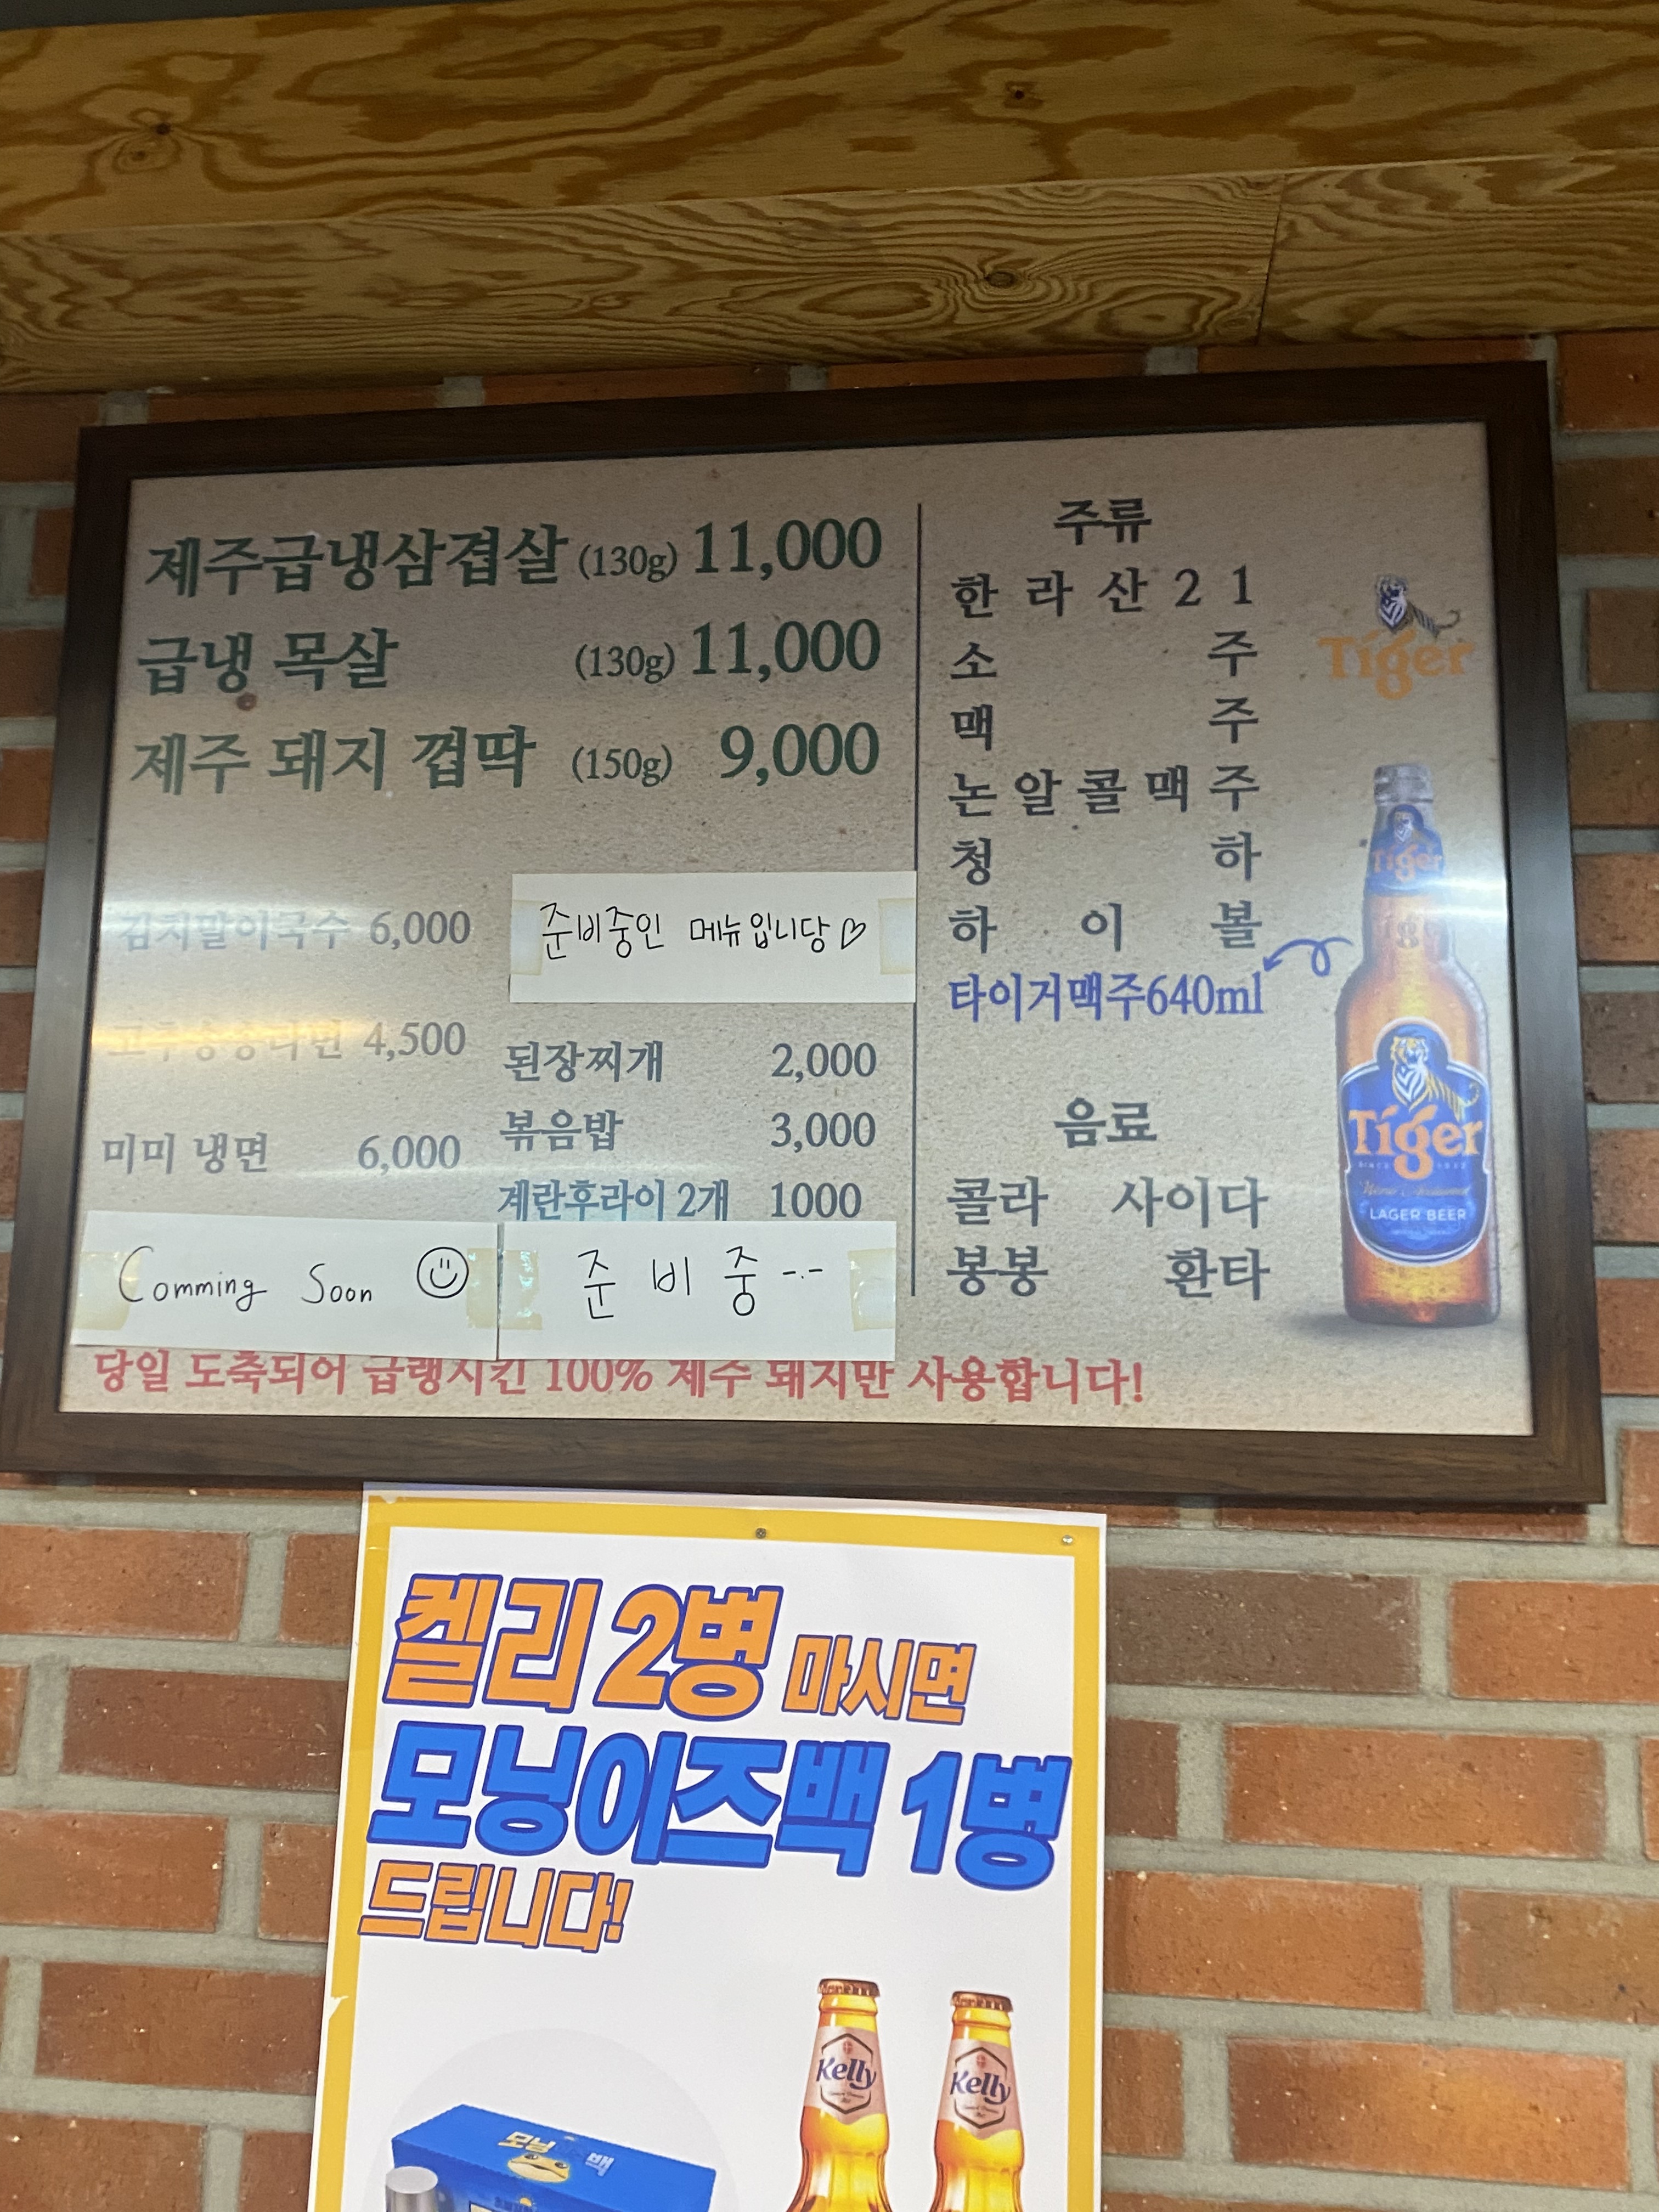 제주급냉삼겹살 (130g) 11,000
급냉 목살 (130g) 11,000
제주 돼지 껍딱 (150g) 9,000
김치말이국수 6,000
고추송송라면 4,500
미미 냉면 6,000
Comming Soon
준비중인 메뉴입니당♡
된장찌개 2,000
볶음밥 3,000
계란후라이 2개 1000
준비중 -.-
당일 도축되어 급랭시킨 100% 제주 돼지만 사용합니다!
주류
한라산21
소주
맥주
논알콜맥주
청하
하이볼
타이거맥주640ml
음료
콜라 사이다
봉봉 환타
Tiger
Tiger
Tiger
LAGER BEER
켈리 2병 마시면
모닝이즈백 1병
드립니다!
Kelly
Kelly
모닝이즈백